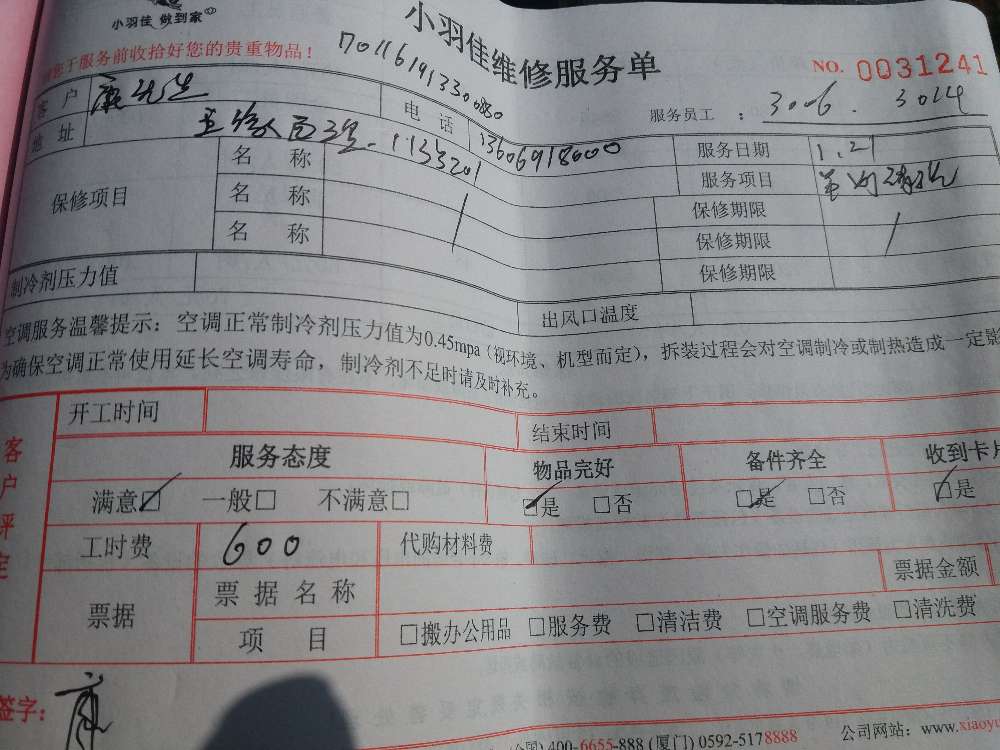 小羽佳 做到家
小羽佳维修服务单
请您于服务前收拾好您的贵重物品！
7011619133000880
NO. 0031241
服务员工 : 3006. 3014
客户 康先生 电话 13606918000 服务日期 1.21
地址 1133201 服务项目
保修项目 名称 保修期限
名称 保修期限
名称 保修期限
制冷剂压力值 出风口温度
空调服务温馨提示：空调正常制冷剂压力值为0.45mpa（视环境、机型而定），拆装过程会对空调制冷或制热造成一定影
为确保空调正常使用延长空调寿命，制冷剂不足时请及时补充。
客户评定
开工时间 结束时间
服务态度 物品完好 备件齐全 收到卡片
满意☑ 一般□ 不满意□ ☑是 □否 ☑是 □否 ☑是
工时费 600 代购材料费
票据 票据名称 票据金额
项目 □搬办公用品 □服务费 □清洁费 □空调服务费 □清洗费
签字： 康
400-6655-888 (厦门) 0592-5178888 公司网站：www.xiaoyu